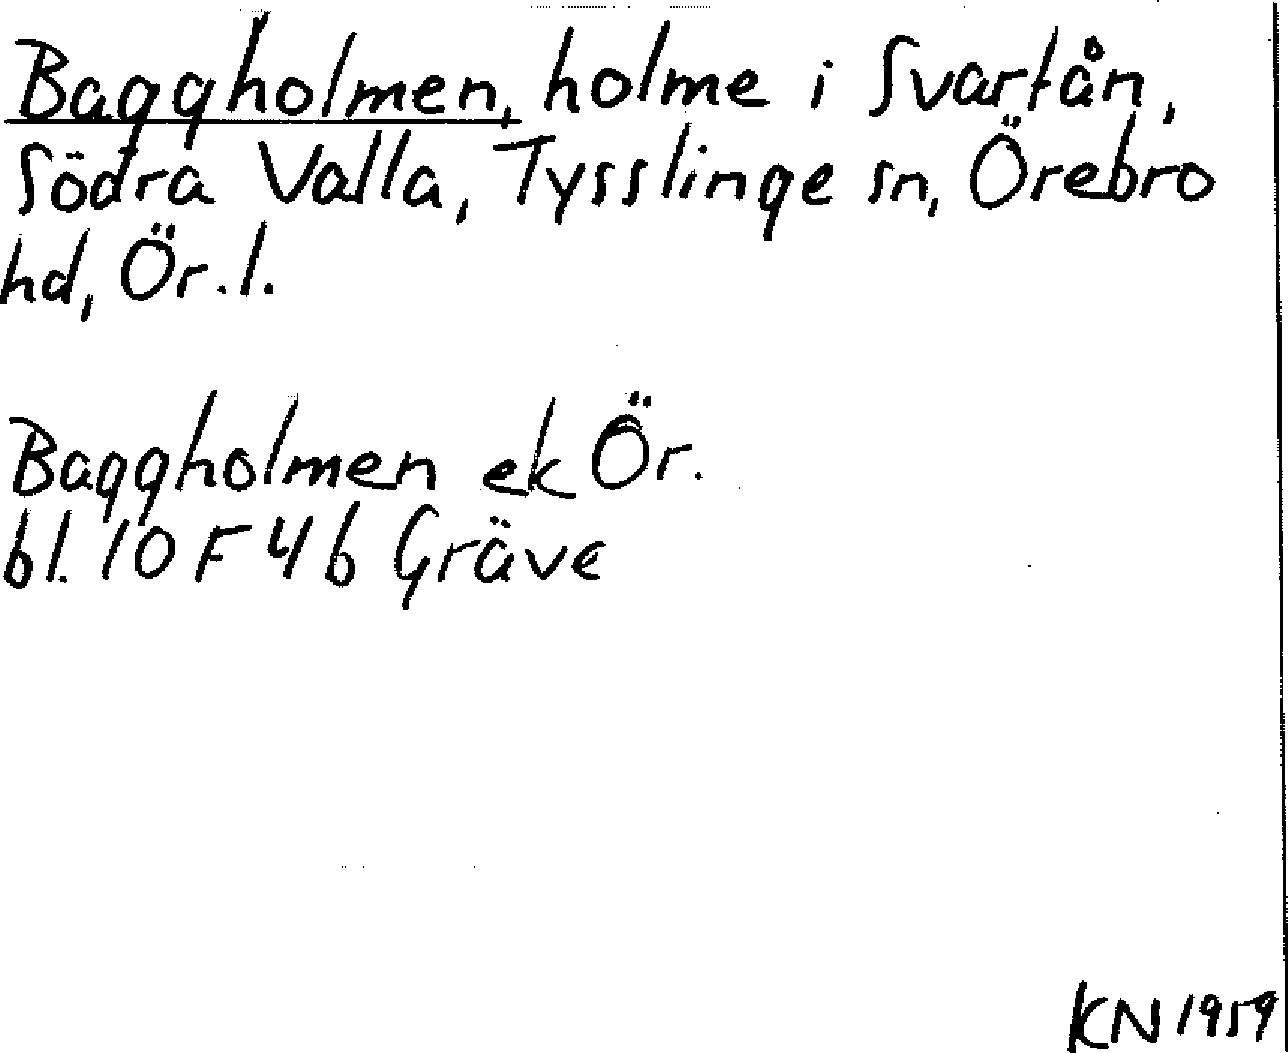 Baggholmen, holme i Svartån,
Södra Valla, Tysslinge sn, Örebro
hd, Ör. l.
Baggholmen ek Ör.
bl. 10 F 4 b Gräve
KN 1959